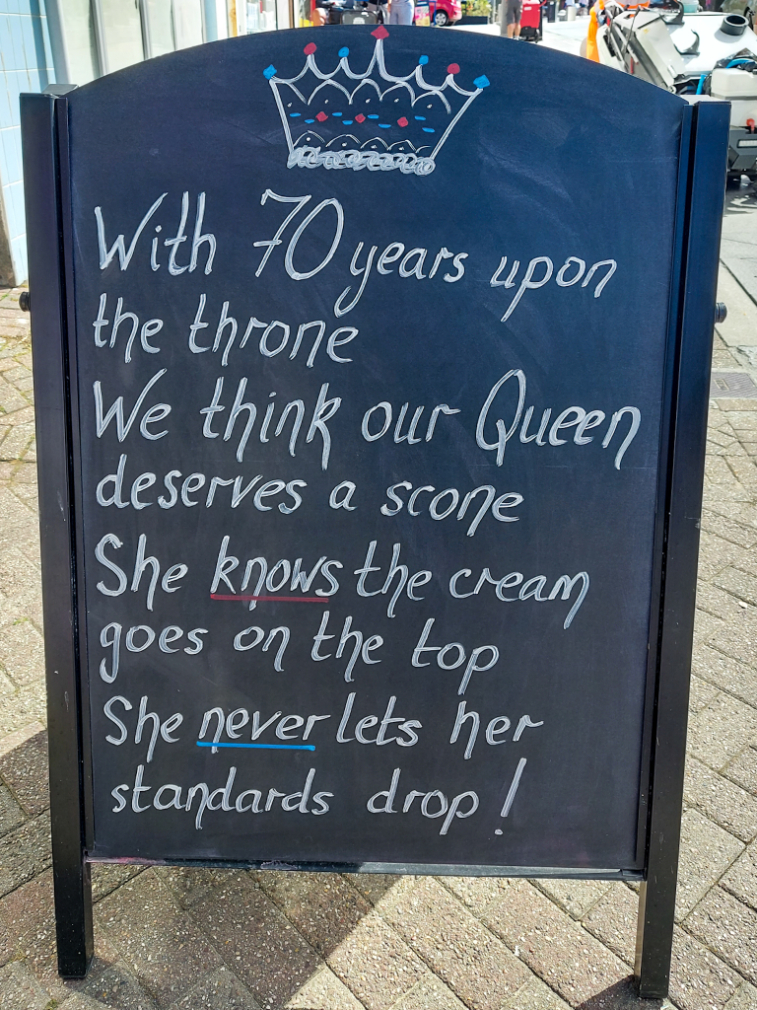 With 70 years upon
the throne
We think our Queen
deserves a scone
She knows the cream
goes on the top
She never lets her
standards drop!